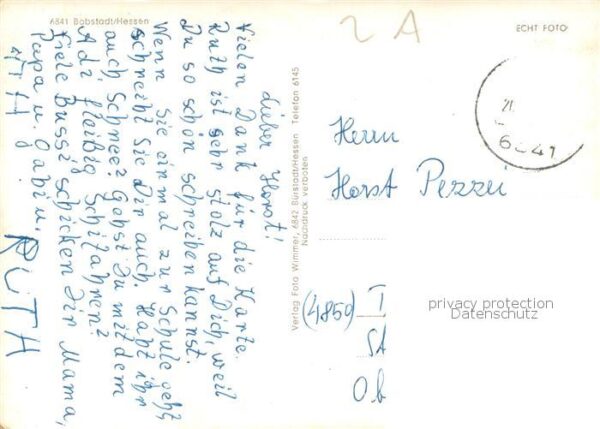 6841 Bobstadt/Hessen
ECHT FOTO
2 A
Lieber Horst!
Vielen Dank für die Karte.
Ruth ist sehr stolz auf Dich, weil
Du so schön schreiben kannst.
Wenn sie einmal zur Schule geht,
schreibt Sie Dir auch. Habt ihr
auch Schnee? Gehst Du mit dem
Adi fleißig Schifahren?
Viele Bussi schicken Dir Mama,
Papa u. Gabi u.
RUTH
Verlag Foto Wimmer, 6842 Bürstadt/Hessen Telefon 6145
Nachdruck verboten
Herrn
Horst Pezzei
(4850) T
SA
Ob
privacy protection
Datenschutz